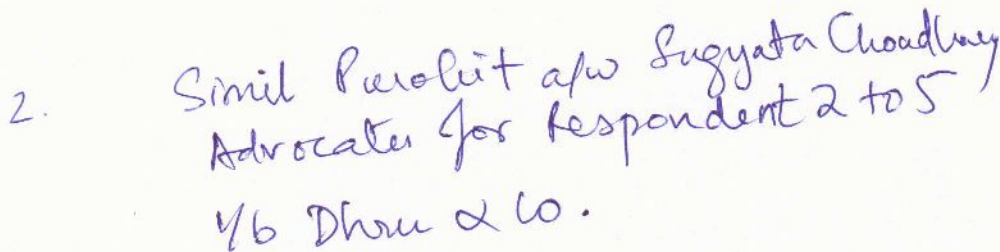 2. Simil Purohit a/w Sugyata Choudhary
Advocates for Respondent 2 to 5
i/b Dhru & Co.